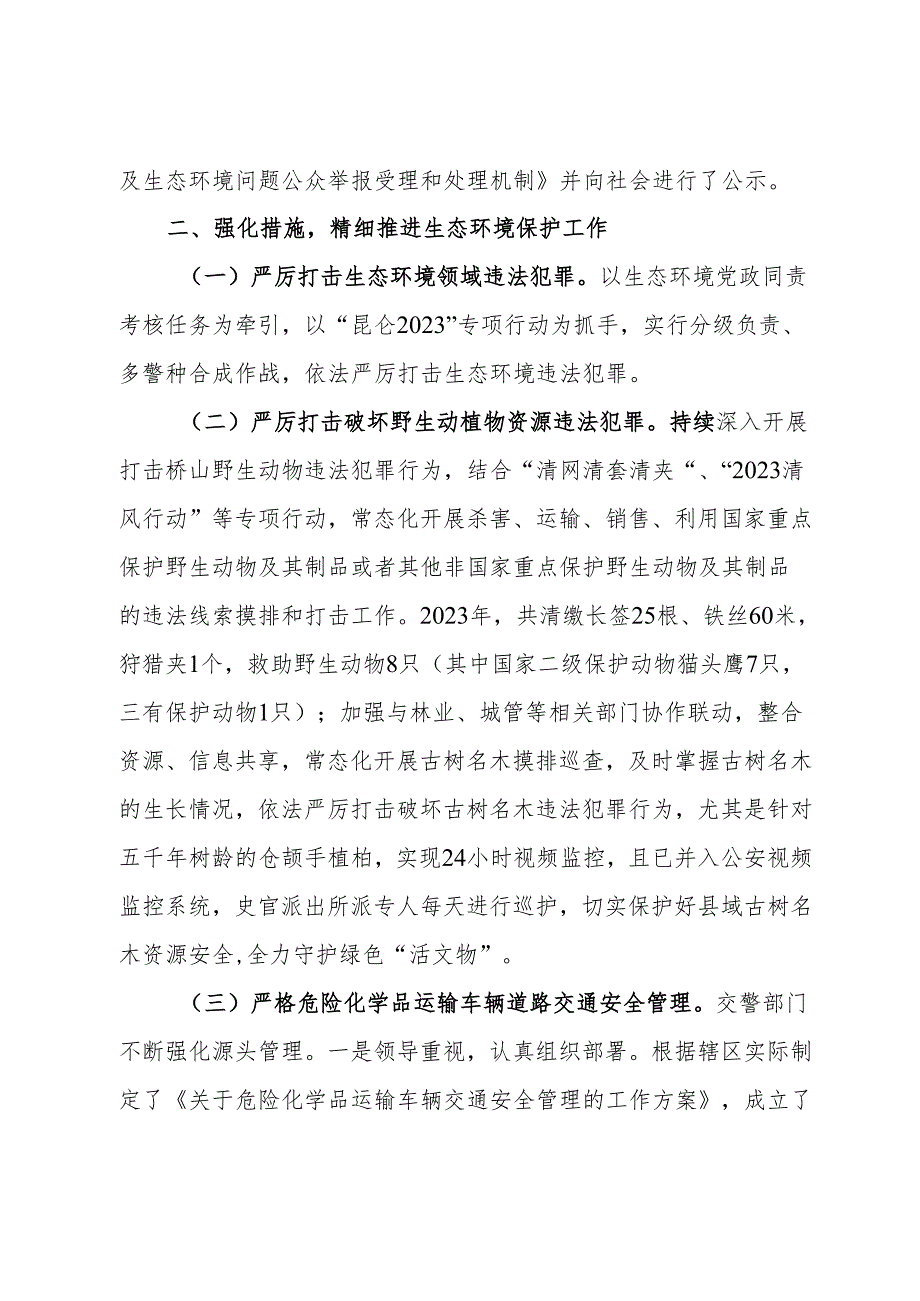 及生态环境问题公众举报受理和处理机制》并向社会进行了公示。
二、强化措施，精细推进生态环境保护工作
（一）严厉打击生态环境领域违法犯罪。以生态环境党政同责
考核任务为牵引，以“昆仑2023”专项行动为抓手，实行分级负责、
多警种合成作战，依法严厉打击生态环境违法犯罪。
（二）严厉打击破坏野生动植物资源违法犯罪。持续深入开展
打击桥山野生动物违法犯罪行为，结合“清网清套清夹“、“2023清
风行动”等专项行动，常态化开展杀害、运输、销售、利用国家重点
保护野生动物及其制品或者其他非国家重点保护野生动物及其制品
的违法线索摸排和打击工作。2023年，共清缴长签25根、铁丝60米，
狩猎夹1个，救助野生动物8只（其中国家二级保护动物猫头鹰7只，
三有保护动物1只）；加强与林业、城管等相关部门协作联动，整合
资源、信息共享，常态化开展古树名木摸排巡查，及时掌握古树名木
的生长情况，依法严厉打击破坏古树名木违法犯罪行为，尤其是针对
五千年树龄的仓颉手植柏，实现24小时视频监控，且已并入公安视频
监控系统，史官派出所派专人每天进行巡护，切实保护好县域古树名
木资源安全,全力守护绿色“活文物”。
（三）严格危险化学品运输车辆道路交通安全管理。交警部门
不断强化源头管理。一是领导重视，认真组织部署。根据辖区实际制
定了《关于危险化学品运输车辆交通安全管理的工作方案》，成立了